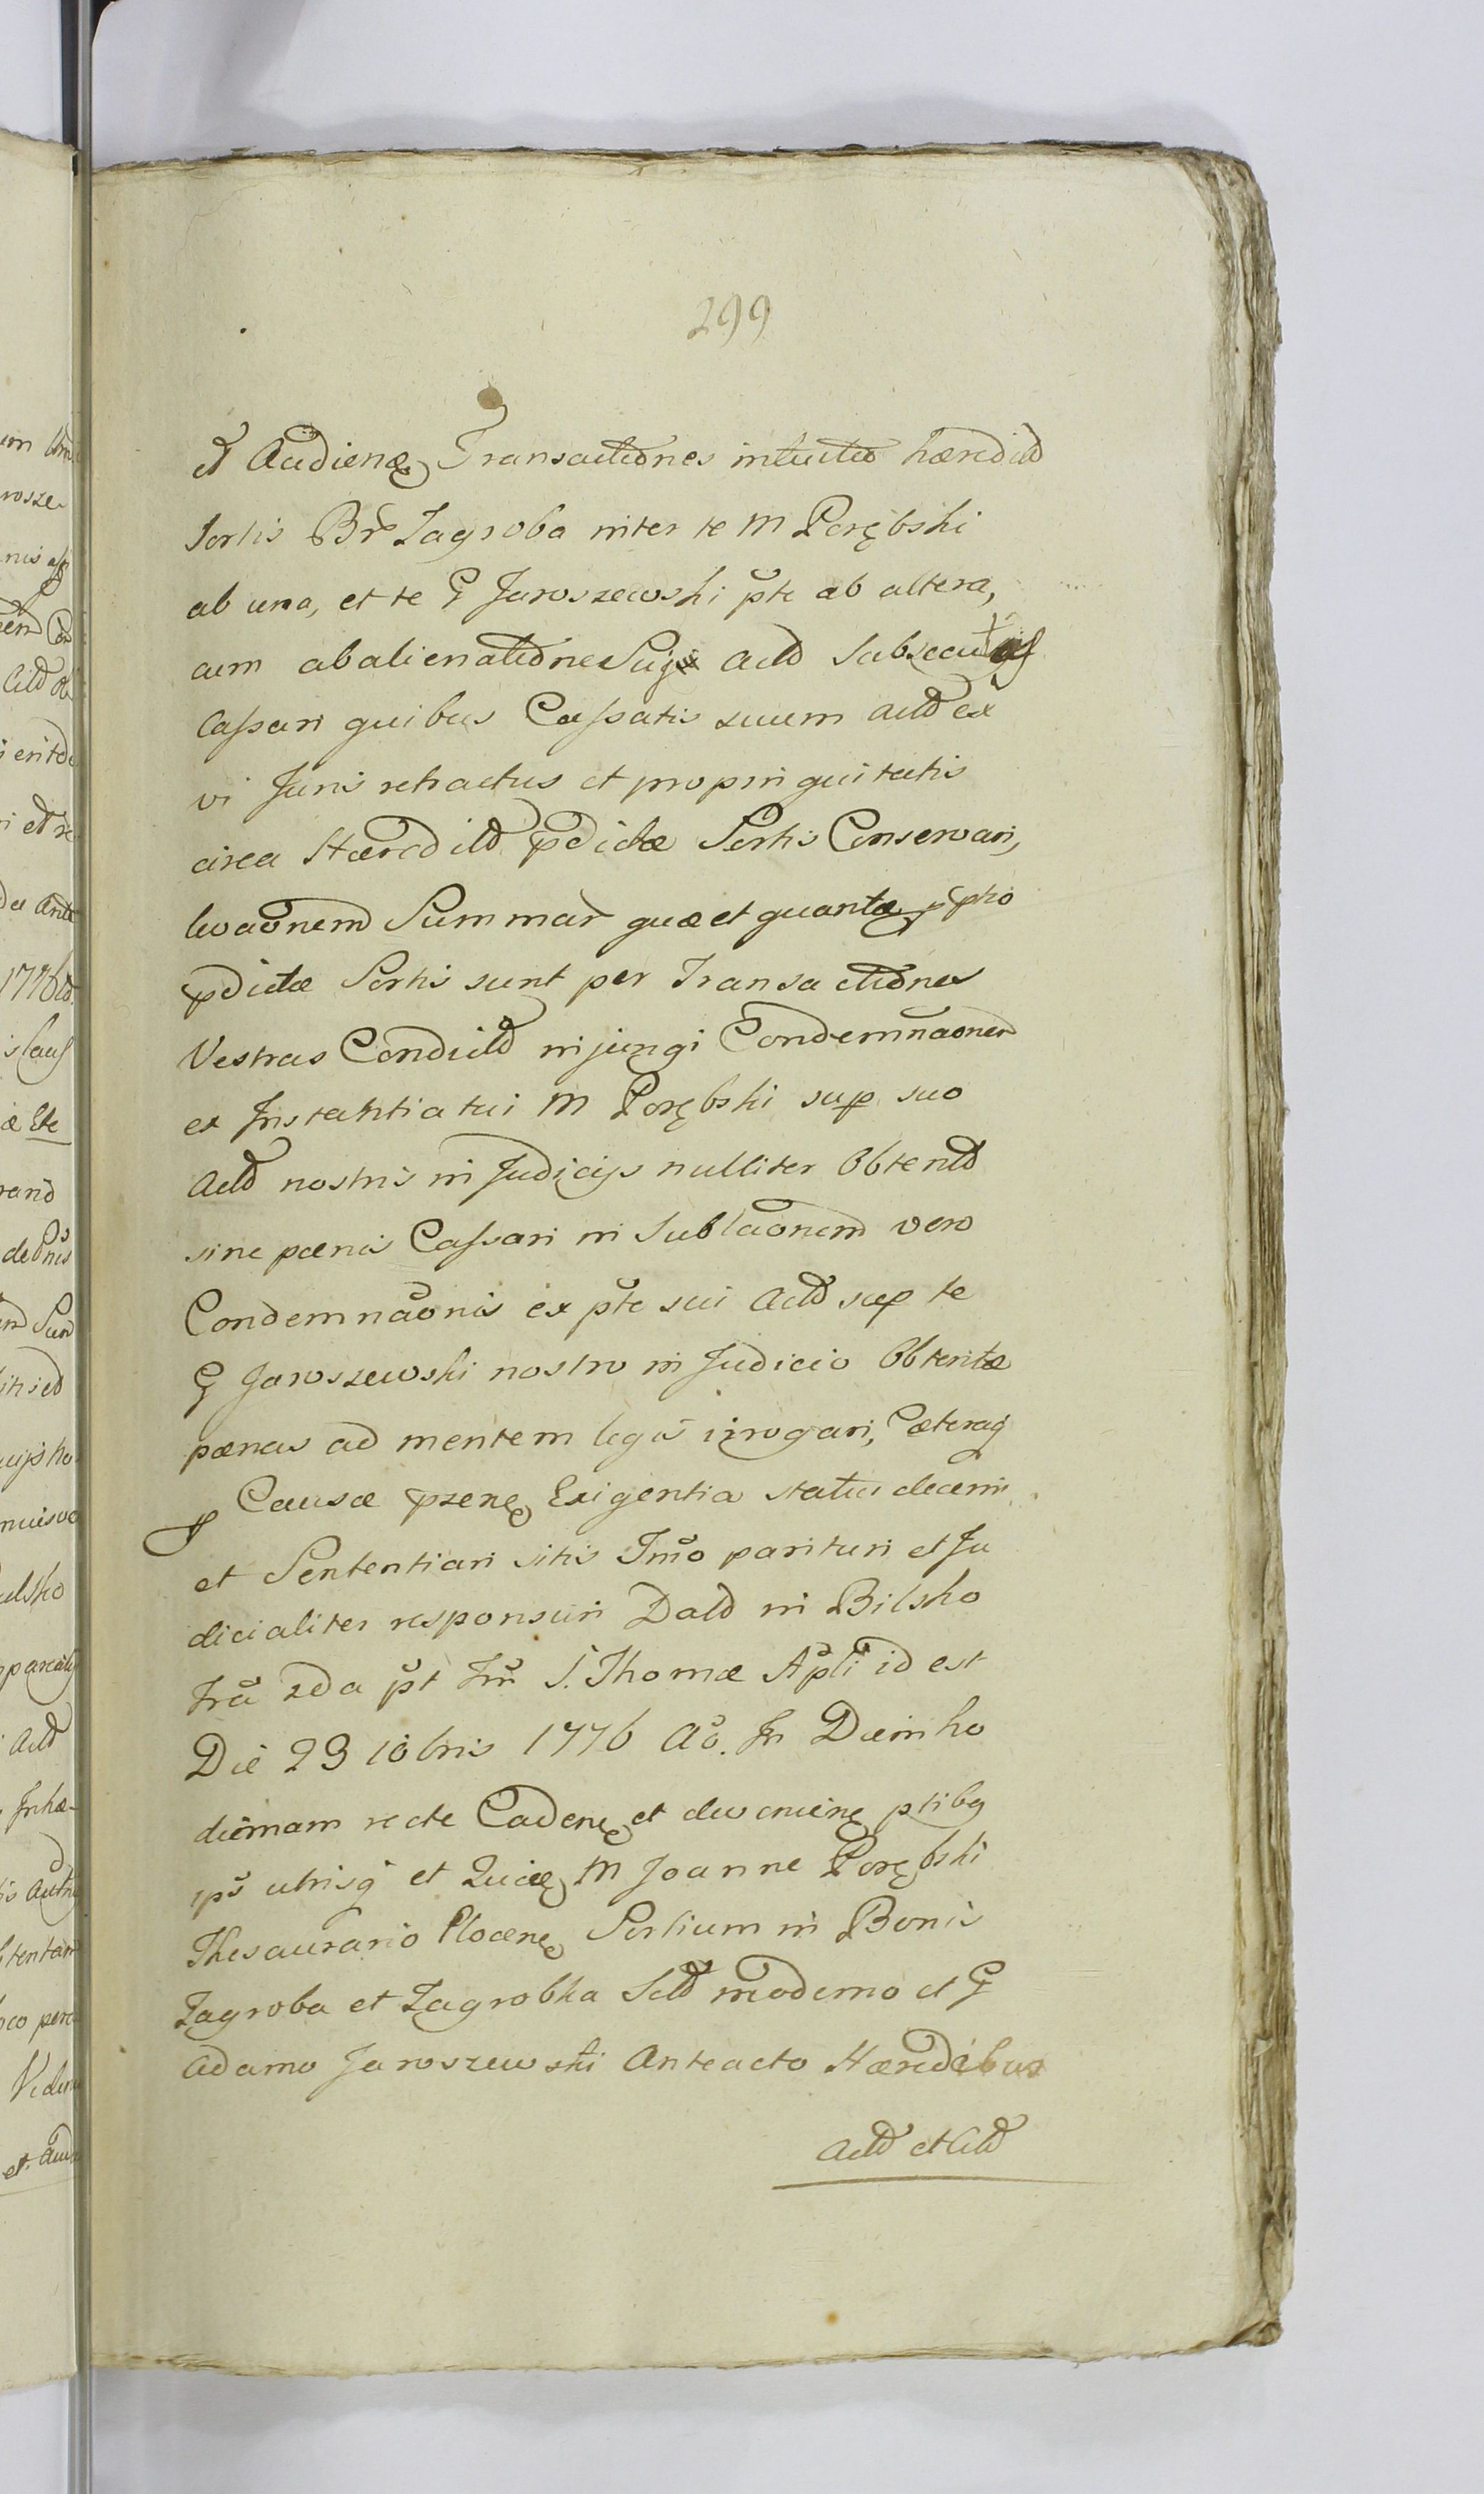 299
et Audien Transactiones intuitu hæredit
Sortis Br Zagroba inter te M Porębski
ab una, et te G Jaroszewski pte ab altera,
cum abalienatione Sui Act subsecu
Cassari quibus Cassatis suum Act ex
vi Juris retractus et propinquitatis
circa Hæredit pdictæ Sortis Conservari,
levaonem Summar quæ et quantæ p ptio
pdictæ Sortis sunt per Transactiones
Vestras Condict injungi Condemnaonem
ex Instantia tui M Porębski sup suo
Act nostris in Judicijs nulliter Obtent
sine pœnis Cassari in Sublaonem vero
Condemnaonis ex pte sui Act sup te
G Jaroszewski nostro in Judicio Obtentæ
pœnas ad mentem legis irrogari, Cæteraq
p Causæ psen Exigentia status decerni
et Sententiari sitis Imo parituri et Ju
dicialiter responsuri Dat in Bilsko
fra 2da pt fm S. Thomæ Apli id est
Die 23 10bris 1776 Ao. In Diem ho
diernam recte Caden et devenien ptibq
ips utrisq et Quidem M Joanne Porębski
Thesaurario Plocen Sortium in Bonis
Zagroba et Zagrobka Sct moderno et G
Adamo Jaroszewski Anteacto Hæredibus
Act et Cit